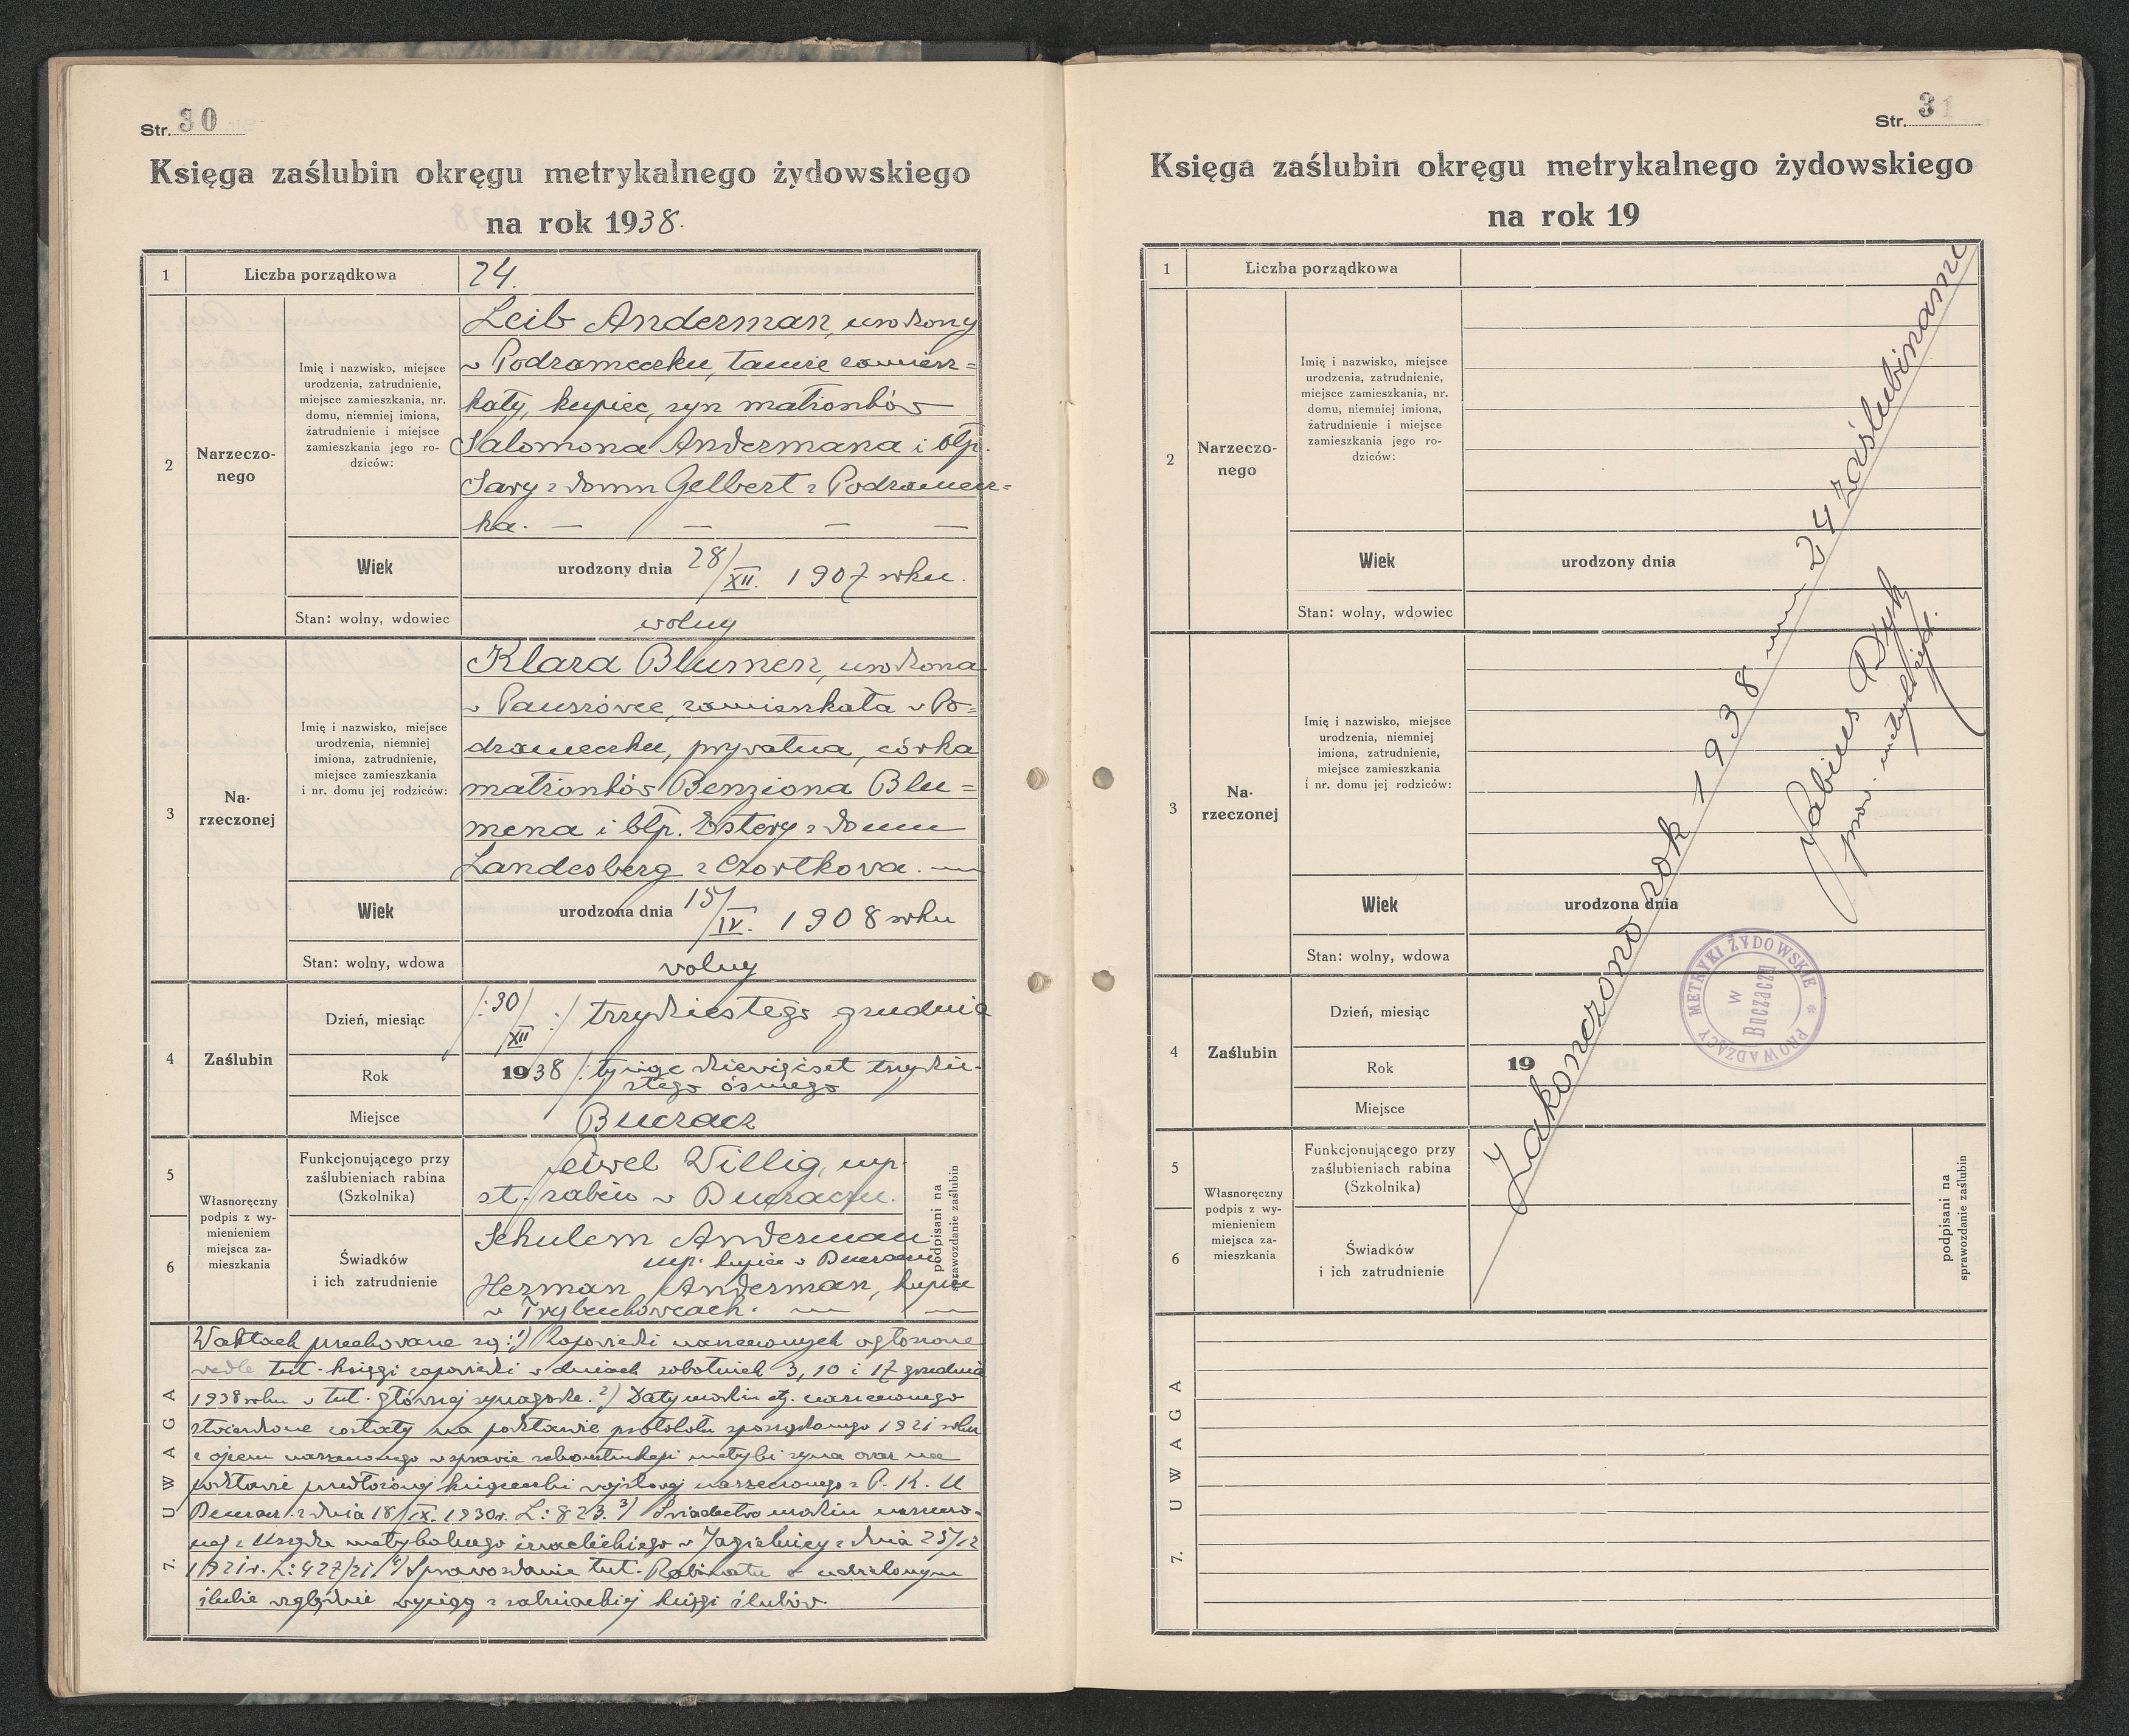 Str. 30
Księga zaślubin okręgu metrykalnego żydowskiego
na rok 1938.
1 Liczba porządkowa 24.
2 Narzeczo-
nego
Imię i nazwisko, miejsce
urodzenia, zatrudnienie,
miejsce zamieszkania, nr.
domu, niemniej imiona,
żatrudnienie i miejsce
zamieszkania jego ro-
dziców:
Leib Anderman, urodzony
w Podzameczku, tamże zamiesz=
kały, kupiec, syn małżonków
Salomona Andermana i błp.
Sary z domu Gelbert z Podzamecz=
ka. — — — —
Wiek urodzony dnia 28/XII. 1907 roku.
Stan: wolny, wdowiec wolny
3 Na-
rzeczonej
Imię i nazwisko, miejsce
urodzenia, niemniej
imiona, zatrudnienie,
miejsce zamieszkania
i nr. domu jej rodziców:
Klara Blumen, urodzona
w Pauszówce, zamieszkała w Po=
dzameczku, prywatna, córka
małżonków Benziona Blu=
mena i błp. Estery z domu
Landesberg z Czortkowa. —
Wiek urodzona dnia 15/IV. 1908 roku
Stan: wolny, wdowa wolny
4 Zaślubin
Dzień, miesiąc /:30/XII :/ trzydziestego grudnia
Rok 1938 /: tysiąc dziewięćset trzydzie-
stego ósmego
Miejsce Buczacz
Własnoręczny
podpis z wy-
mienieniem
miejsca za-
mieszkania
5 Funkcjonującego przy
zaślubieniach rabina
(Szkolnika)
Feiwel Willig, mp.
st. rabin w Buczaczu.
6 Świadków
i ich zatrudnienie
Schulem Anderman
mp. kupiec w Buczaczu
Herman Anderman, kupiec
w Trybuchowcach. — —
podpisani na
sprawozdanie zaślubin
7. UWAGA
W aktach przechowane są: 1) Zapowiedzi narzeczonych ogłoszone
wedle tut. księgi zapowiedzi w dniach sobotnich 3, 10 i 17 grudnia
1938 roku w tut. głównej synagodze. 2) Daty urodzin narzeczonego
stwierdzone zostały na podstawie protokołu sporządzonego 1921 roku
z ojcem narzeczonego w sprawie rekonstrukcji metryki syna oraz na
podstawie przedłożonej książeczki wojskowej narzeczonego z P. K. U
Buczacz z dnia 18/IX. 1930r. L: 823. 3) Świadectwo urodzin narzeczo-
nej z Urzędu metrykalnego izraelickiego w Jagielnicy z dnia 25/12
1921r. L: 427/21 4) Sprawozdanie tut. Rabinatu o udzielonym
ślubie względnie wyciąg z rabinackiej księgi ślubów.
Str. 31
Księga zaślubin okręgu metrykalnego żydowskiego
na rok 19
1 Liczba porządkowa
2 Narzeczo-
nego
Imię i nazwisko, miejsce
urodzenia, zatrudnienie,
miejsce zamieszkania, nr.
domu, niemniej imiona,
żatrudnienie i miejsce
zamieszkania jego ro-
dziców:
Wiek urodzony dnia
Stan: wolny, wdowiec
3 Na-
rzeczonej
Imię i nazwisko, miejsce
urodzenia, niemniej
imiona, zatrudnienie,
miejsce zamieszkania
i nr. domu jej rodziców:
Wiek urodzona dnia
Stan: wolny, wdowa
4 Zaślubin
Dzień, miesiąc
Rok 19
Miejsce
Własnoręczny
podpis z wy-
mienieniem
miejsca za-
mieszkania
5 Funkcjonującego przy
zaślubieniach rabina
(Szkolnika)
6 Świadków
i ich zatrudnienie
podpisani na
sprawozdanie zaślubin
7. UWAGA
Zakończono rok 1938 24 zaślubinami
prow. metryk. żyd.
PROWADZĄCY METRYKI ŻYDOWSKIE
w
Buczaczu